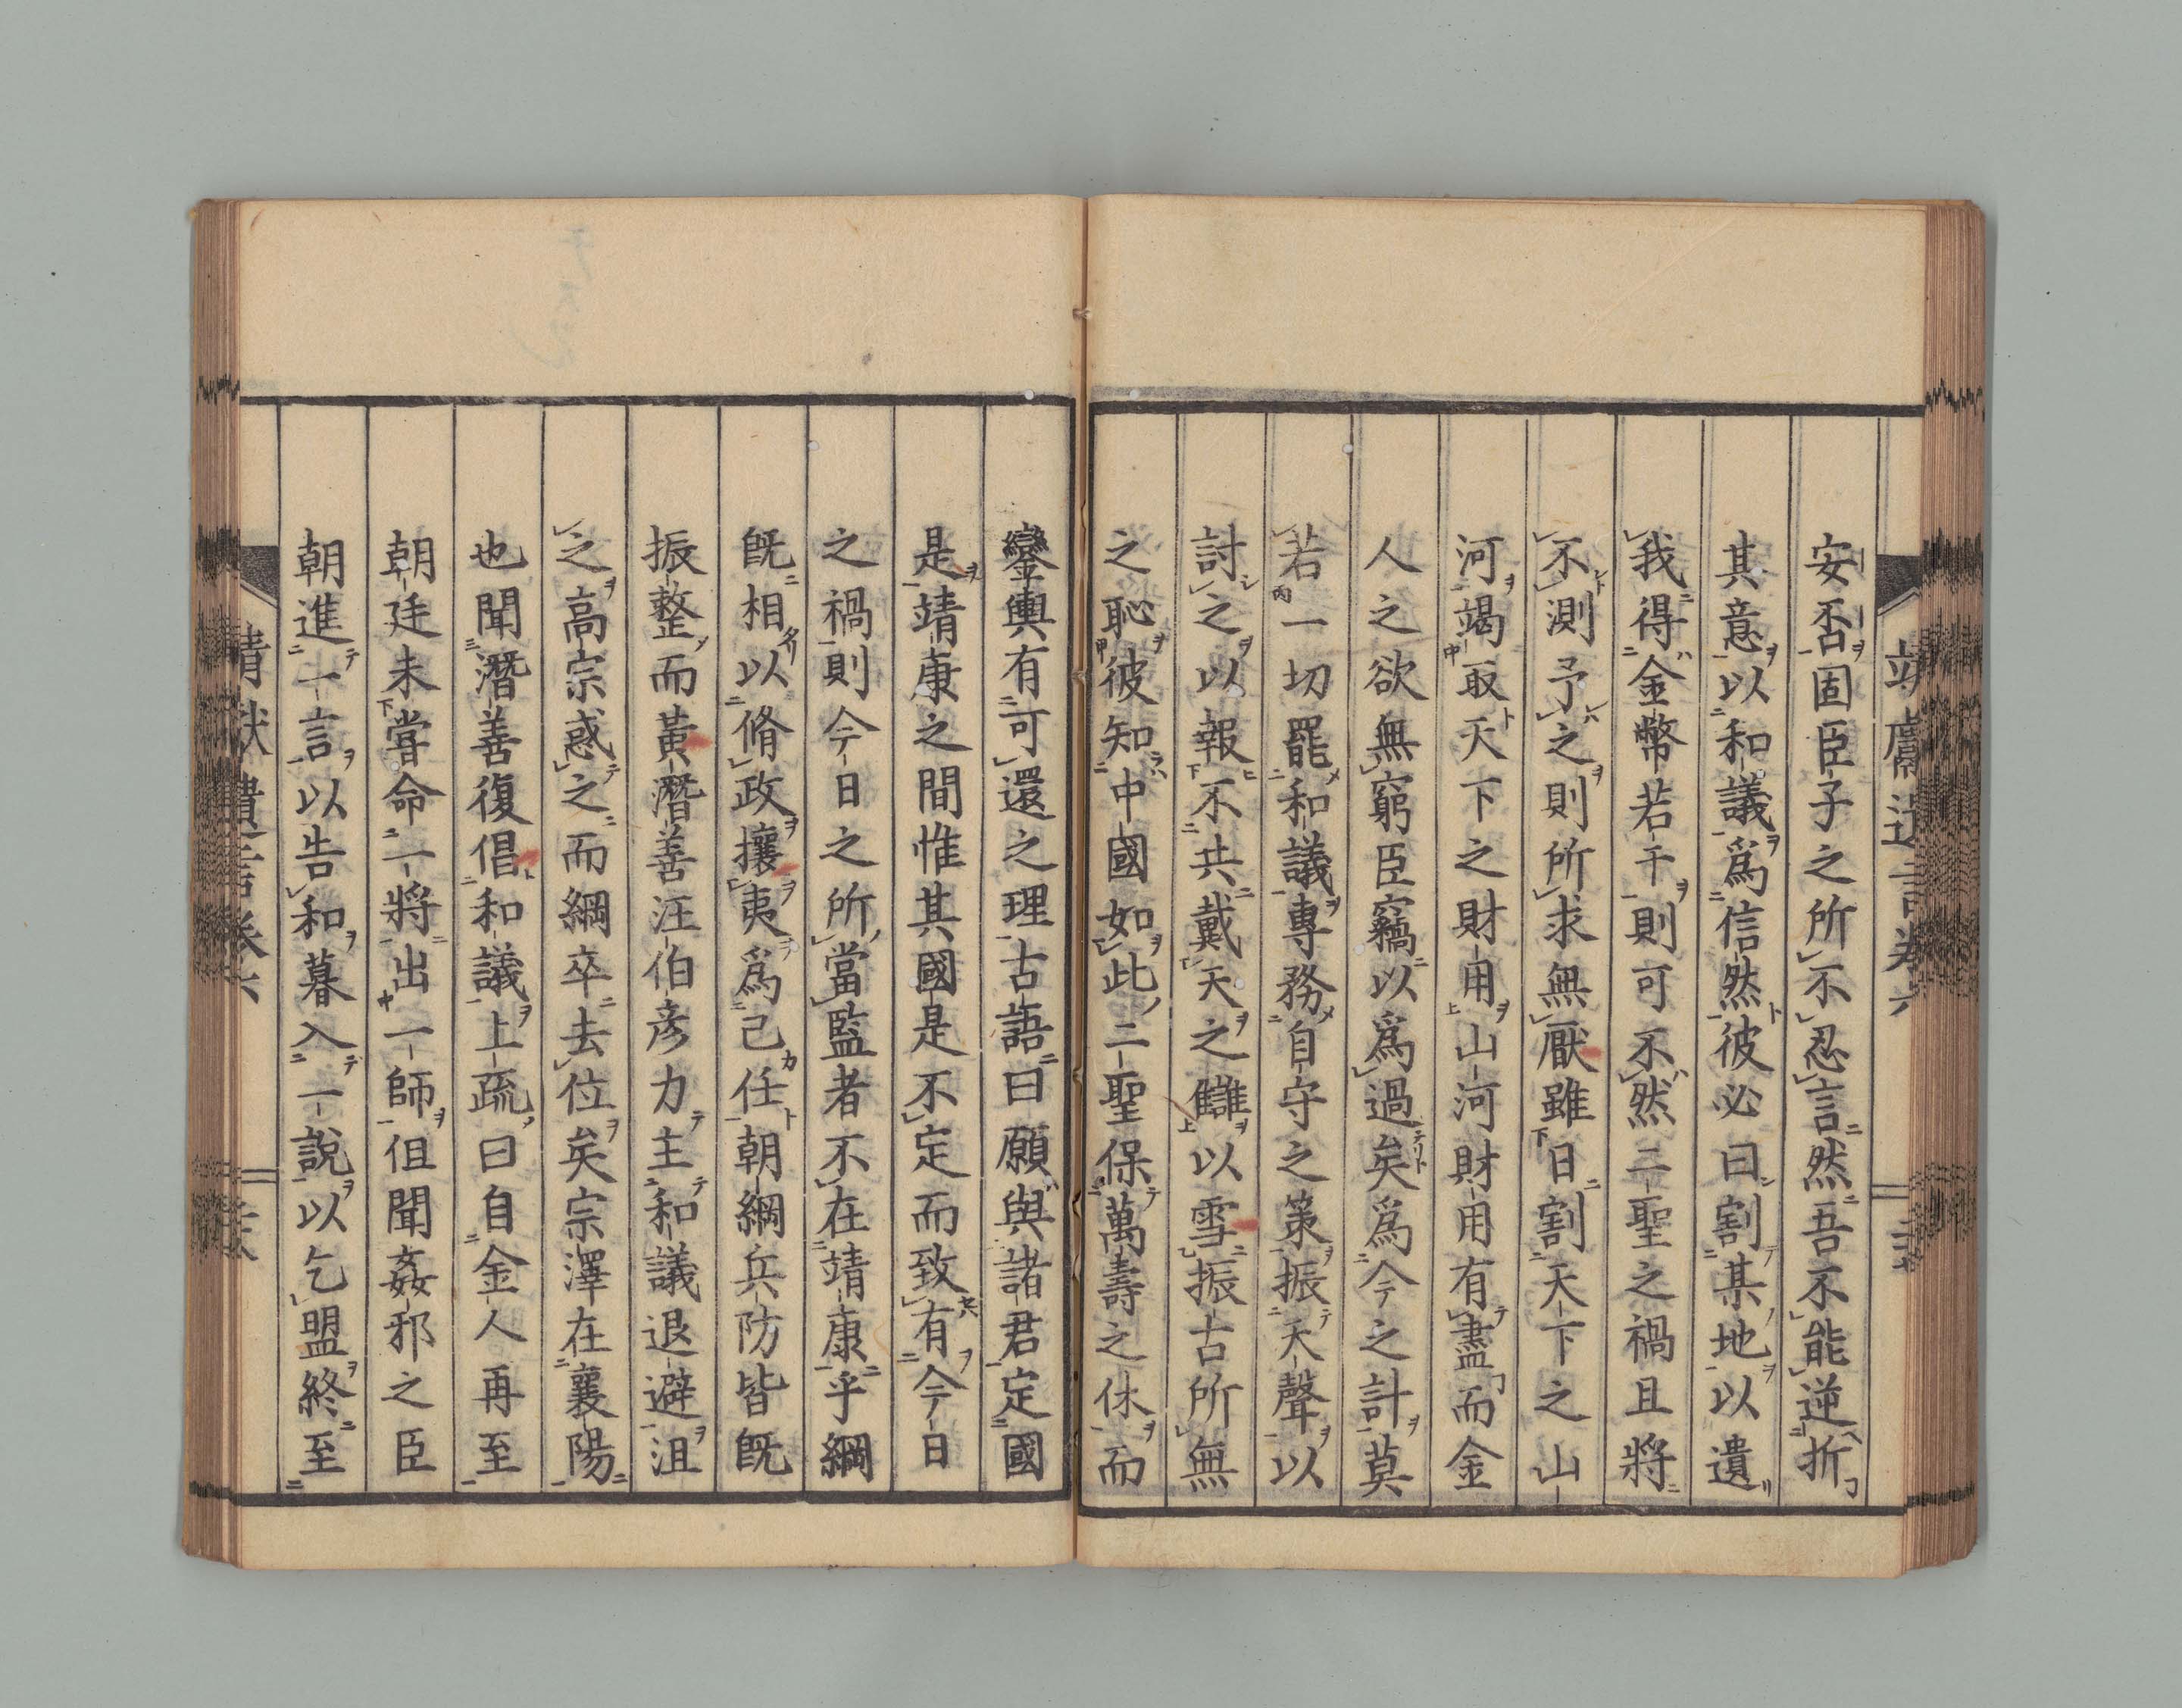 安否固臣子之所不忍言然吾不能逆折
其意以和議爲信然彼必曰割某地以遺
我得金幣若干則可不然二聖之禍且將
不測予之則所求無厭雖日割天下之山
河竭取天下之財用山河財用有盡而金
人之欲無窮臣竊以爲過矣爲今之計莫
若一切罷和議專務自守之策振天聲以
討之以報不共戴天之讎以雪振古所無
之恥彼知中國如此二聖保萬壽之休而
鑾輿有可還之理古語曰願與諸君定國
是靖康之間惟其國是不定而致有今日
之禍則今日之所當監者不在靖康乎綱
旣相以脩政攘夷爲己任朝綱兵防皆旣
振整而黃潛善汪伯彥力主和議退避沮
之高宗惑之而綱卒去位矣宗澤在襄陽
也聞潛善復倡和議上疏曰自金人再至
朝廷未嘗命一將出一師但聞姦邪之臣
朝進一言以告和暮入一說以乞盟終至